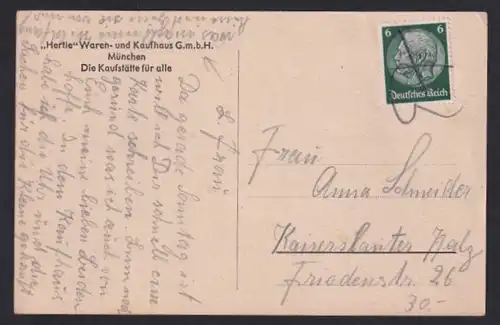 „Hertie" Waren- und Kaufhaus G.m.b.H.
München
Die Kaufstätte für alle
6 6
Deutsches Reich
L. Frau
Da gerade Sonntag ist
will ich Dir schnell eine
Karte schreiben. Bin
gesund was ich auch von
Euch meine lieben beiden
hoffe. In dem Kaufhaus
habe ich die Uhr und das
für die Kleine gekauft
was
Frau
Anna Schneider
Kaiserslauter Pfalz
Friedenstr. 26
30.-